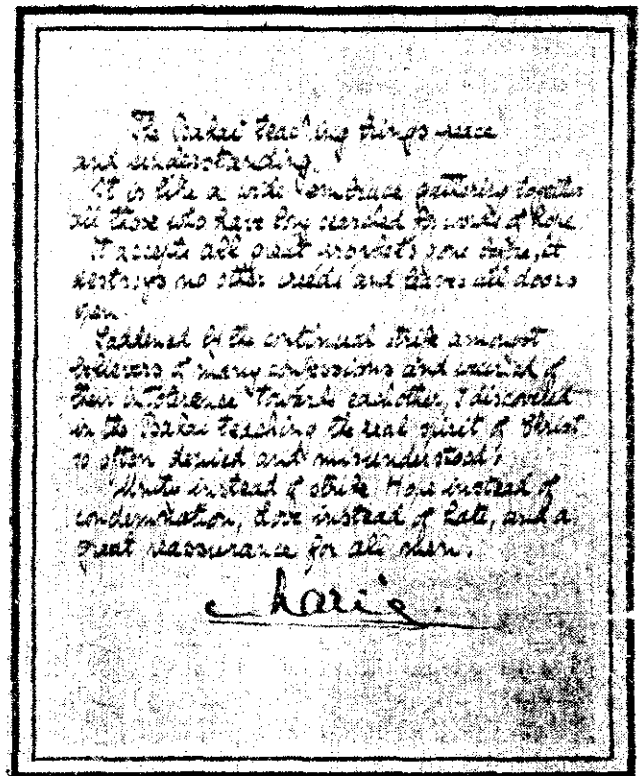 The Bahai teaching brings peace
and understanding.
It is like a wide embrace gathering together
all those who have long searched for words of hope.
It accepts all great prophets gone before, it
destroys no other creeds and leaves all doors
open.
Saddened by the continual strife amongst
believers of many confessions and wearied of
their intolerance towards each other, I discovered
in the Bahai teaching the real spirit of Christ
so often denied and misunderstood:
Unity instead of strife, Hope instead of
condemnation, Love instead of hate, and a
great reassurance for all men.
Marie.